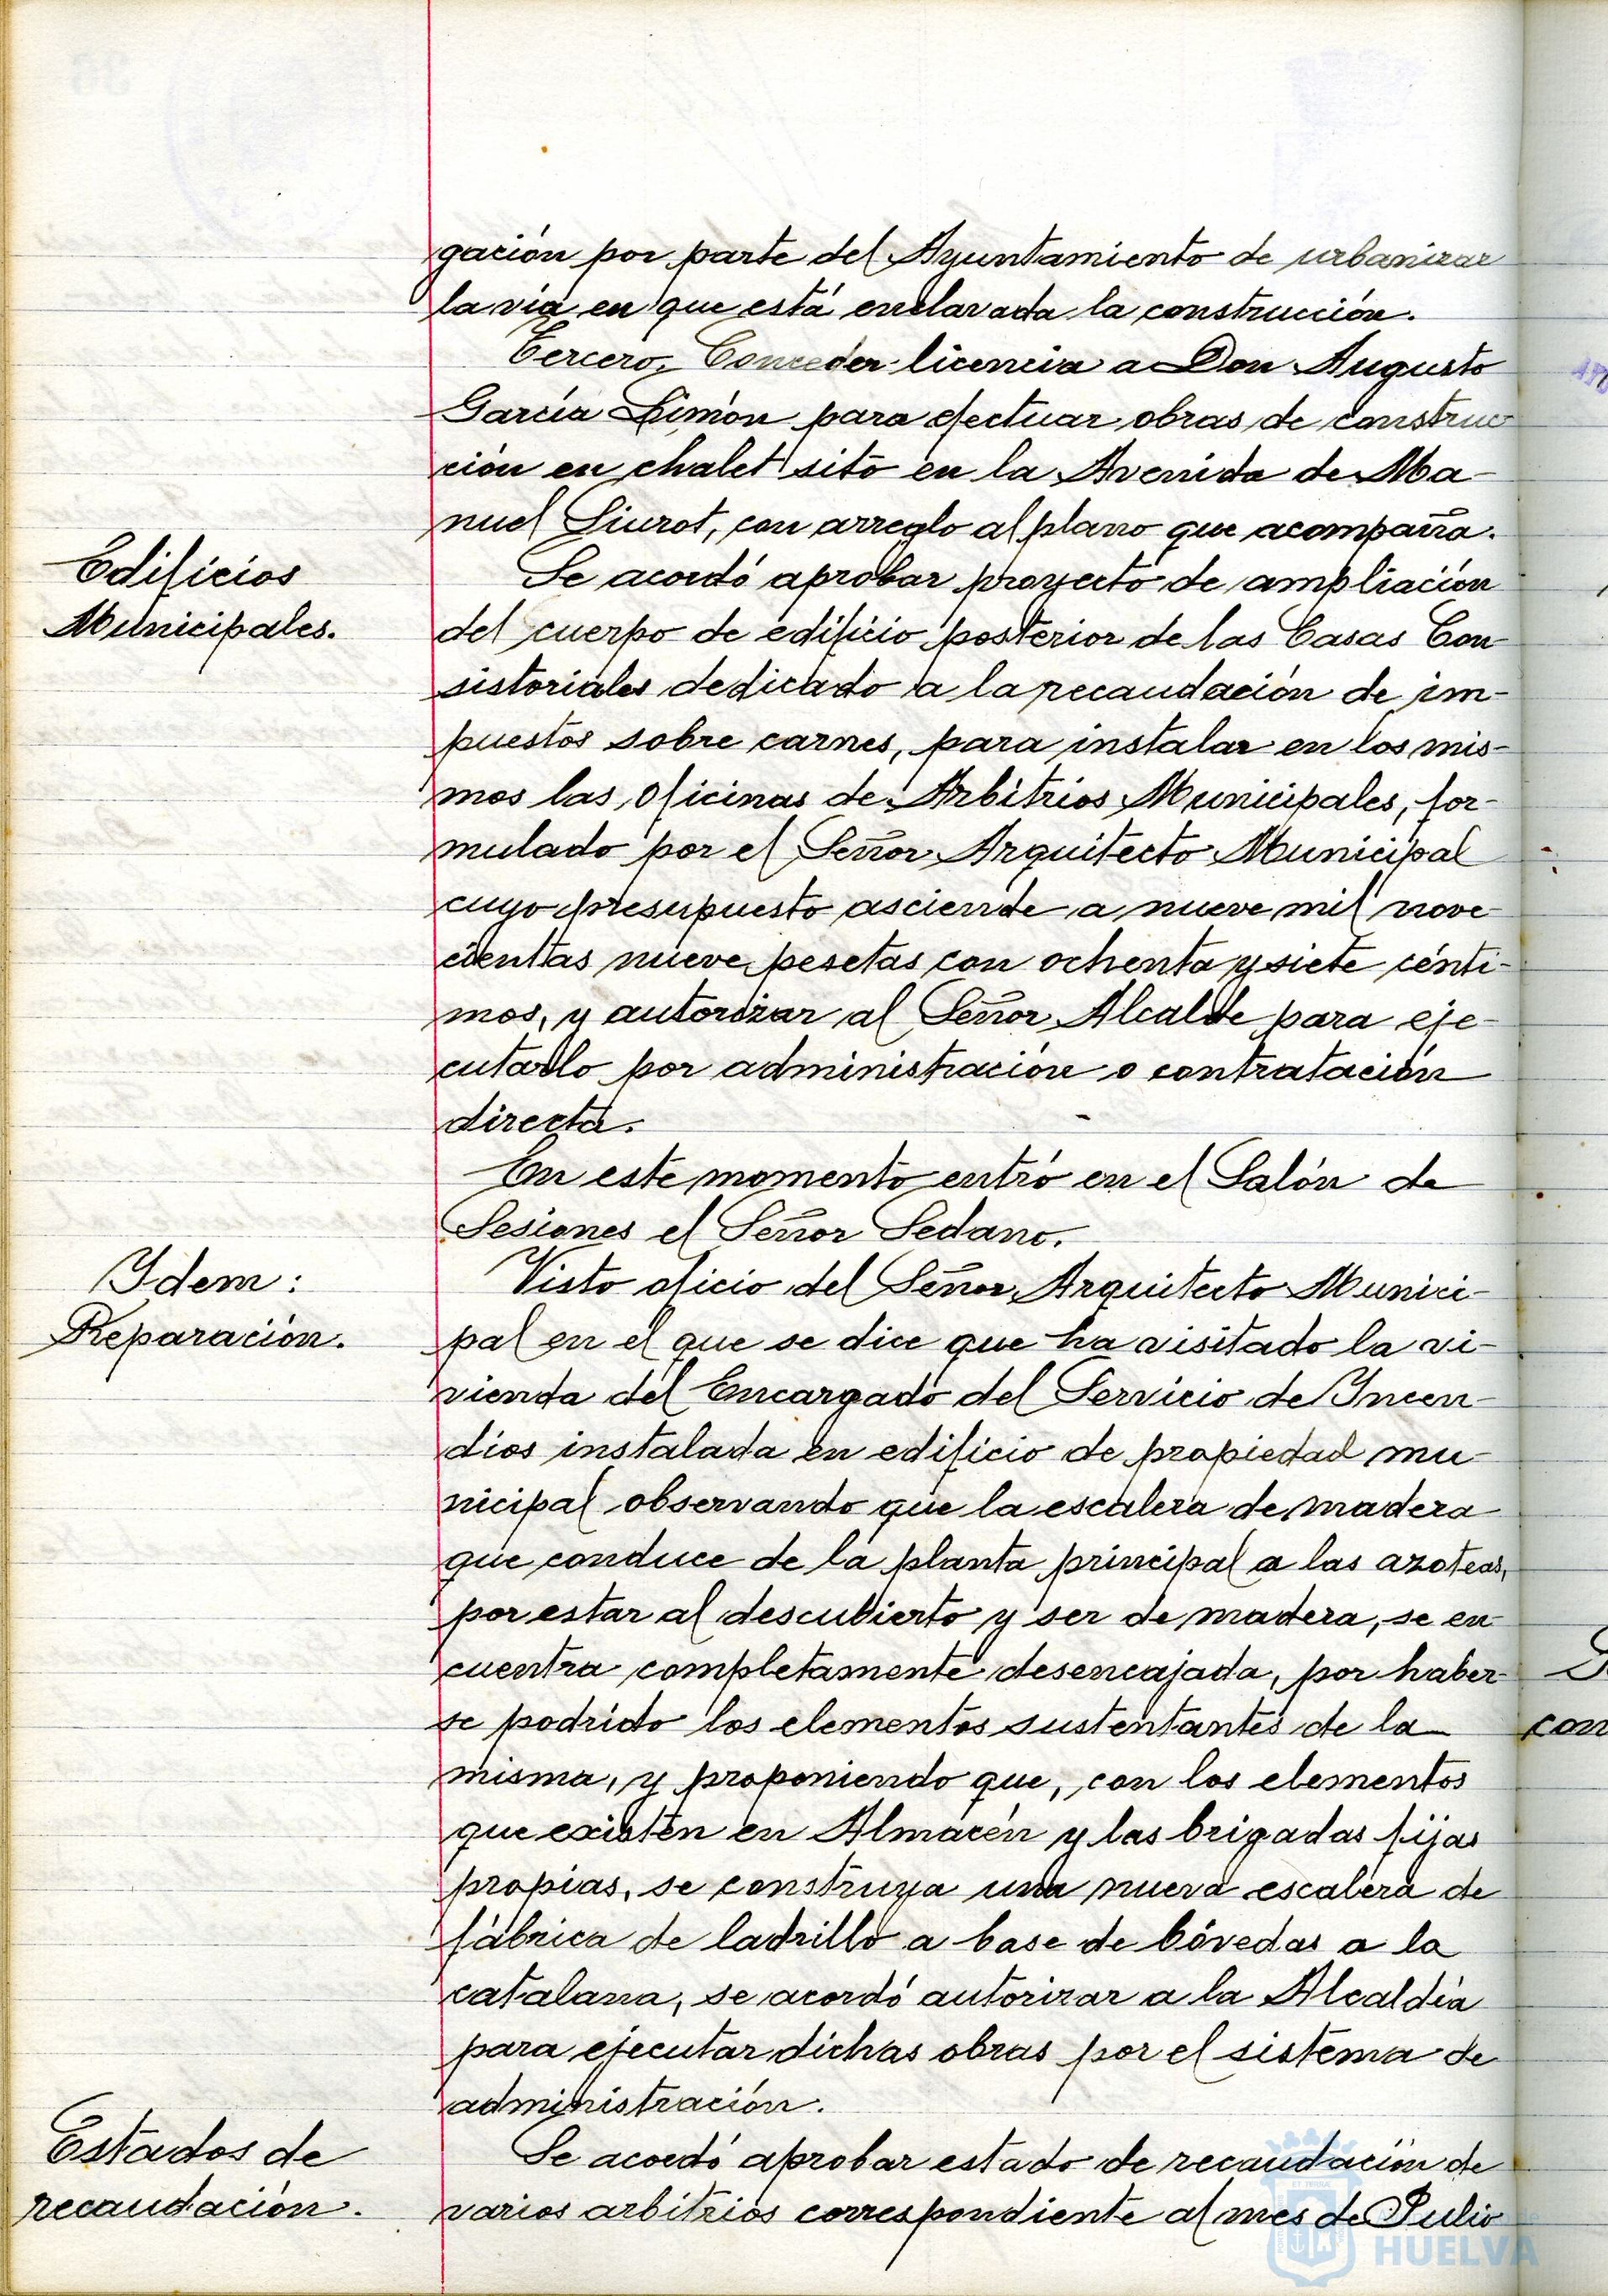 gación por parte del Ayuntamiento de urbanizar
la vía en que está enclavada la construcción.
Tercero. Conceder licencia a Don Augusto
García Simón para efectuar obras de construc
ción en chalet sito en la Avenida de Ma-
nuel Siurot, con arreglo al plano que acompaña.
Edificios
Municipales.
Se acordó aprobar proyecto de ampliación
del cuerpo de edificio posterior de las Casas Con
sistoriales dedicado a la recaudación de im-
puestos sobre carnes, para instalar en los mis-
mos las oficinas de Arbitrios Municipales, for-
mulado por el Señor Arquitecto Municipal
cuyo presupuesto asciende a nueve mil nove-
cientas nueve pesetas con ochenta y siete cénti-
mos, y autorizar al Señor Alcalde para eje-
cutarlo por administración o contratación
directa.
En este momento entró en el Salón de
Sesiones el Señor Sedano.
Idem:
Reparación.
Visto oficio del Señor Arquitecto Munici-
pal en el que se dice que ha visitado la vi-
vienda del Encargado del Servicio de Incen-
dios instalada en edificio de propiedad mu-
nicipal observando que la escalera de madera
que conduce de la planta principal a las azoteas,
por estar al descubierto y ser de madera, se en-
cuentra completamente desencajada, por haber-
se podrido los elementos sustentantes de la
misma, y proponiendo que, con los elementos
que existen en Almacén y las brigadas fijas
propias, se construya una nueva escalera de
fábrica de ladrillo a base de bóvedas a la
catalana, se acordó autorizar a la Alcaldía
para ejecutar dichas obras por el sistema de
administración.
Estados de
recaudación.
Se acordó aprobar estado de recaudación de
varios arbitrios correspondiente al mes de Julio
con
HUELVA